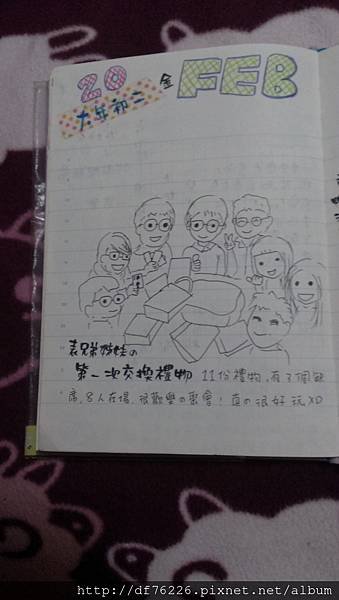 20 金 FEB
大年初二
表兄弟姊妹の
第一次交換禮物 11份禮物,有3個缺
席,8人在場,很歡樂の聚會!真の很好玩XD
http://df76226.pixnet.net/album